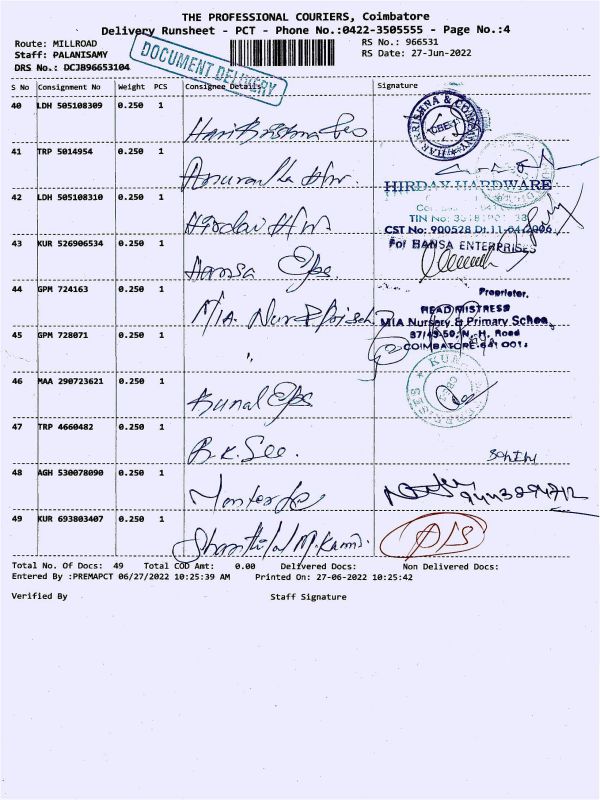 THE PROFESSIONAL COURIERS, Coimbatore
Delivery Runsheet - PCT - Phone No.:0422-3505555 - Page No.:4
Route: MILLROAD RS No.: 966531
Staff: PALANISAMY RS Date: 27-Jun-2022
DRS No.: DCJB96653104
DOCUMENT DELIVERY
S No Consignment No Weight PCS Consignee Details Signature
40 LDH 505108309 0.250 1 Hari Krishna &co
HARI KRISHNA & COMPANY
CBE-1
41 TRP 5014954 0.250 1 Anuradha H/w.
HIRDAY HARDWARE
42 LDH 505108310 0.250 1 Hirday H/w
TIN No:
CST No: 900528 Dt.11-04-2006
43 KUR 526906534 0.250 1 Hansa Eps.
For HANSA ENTERPRISES
Proprietor.
44 GPM 724163 0.250 1 MIA. Nur & Pri sch
HEAD MISTRESS
MIA Nursery & Primary School
N. H. Road
45 GPM 728071 0.250 1 "
COIMBATORE-641 001
46 MAA 290723621 0.250 1 Kunal Eps
47 TRP 4660482 0.250 1 B.K. See.
48 AGH 530078090 0.250 1
49 KUR 693803407 0.250 1 Shanthilal M. Kami.
Total No. Of Docs: 49 Total COD Amt: 0.00 Delivered Docs: Non Delivered Docs:
Entered By :PREMAPCT 06/27/2022 10:25:39 AM Printed On: 27-06-2022 10:25:42
Verified By Staff Signature